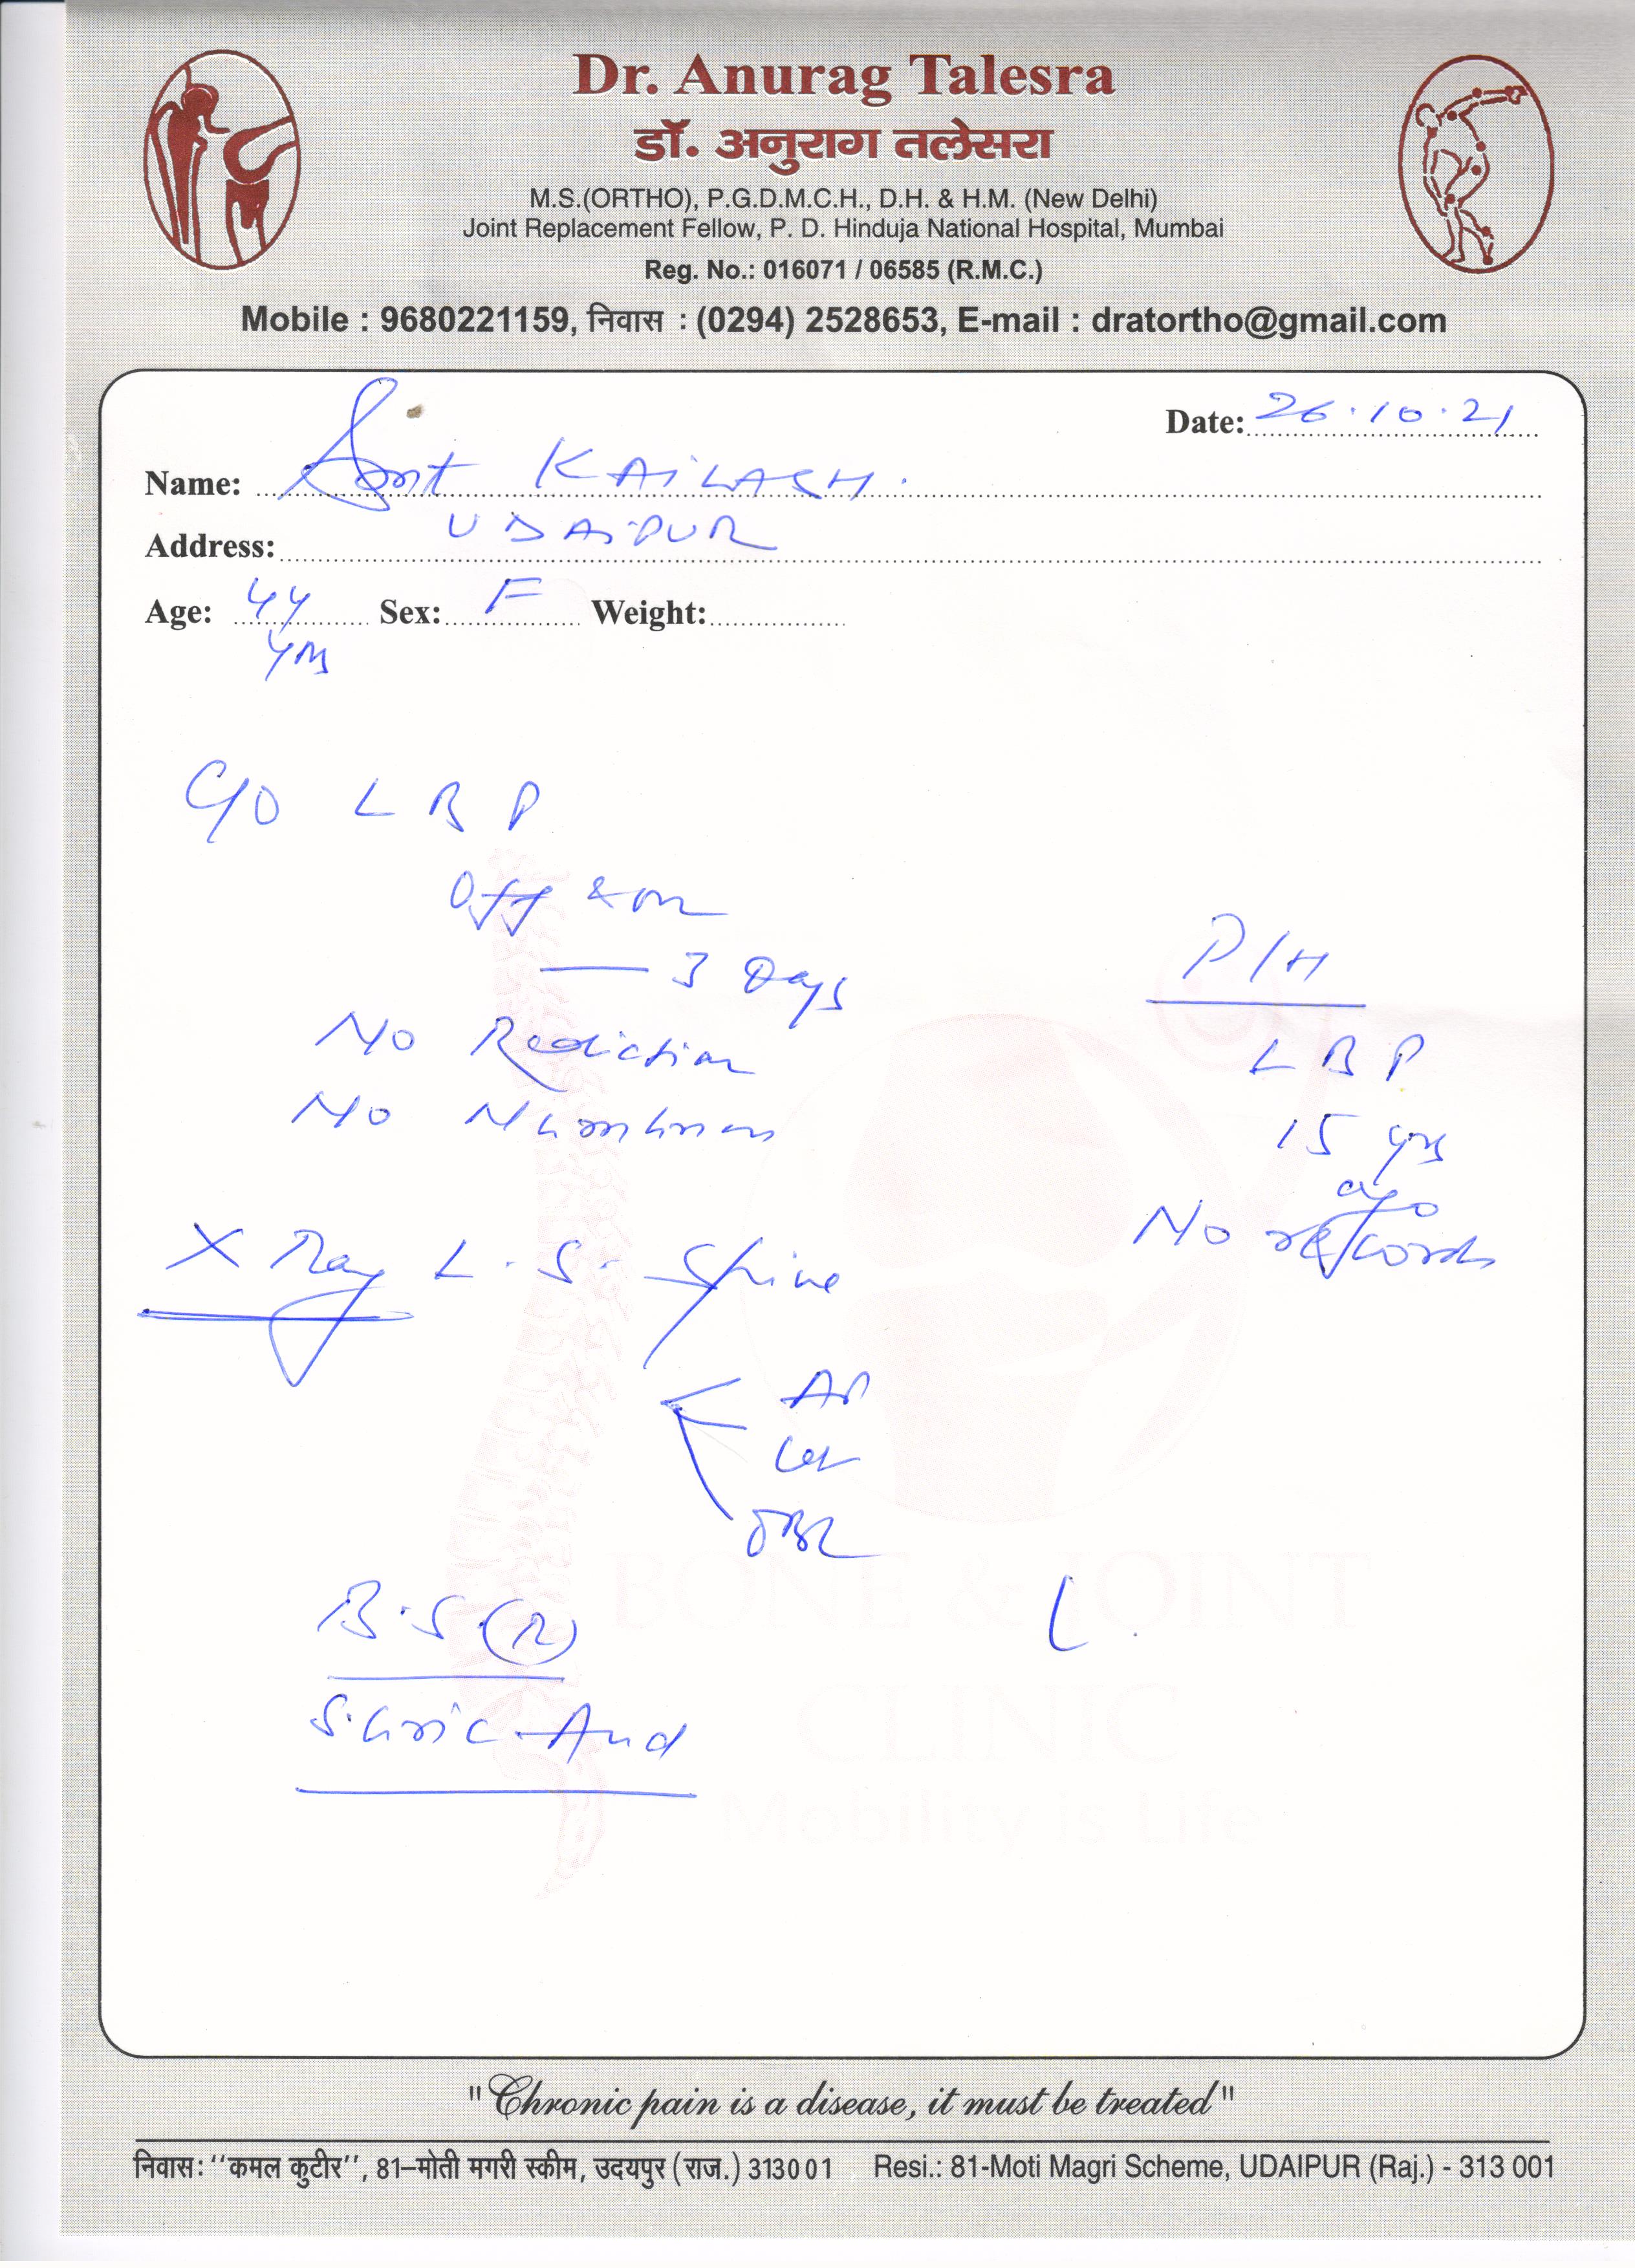 Dr. Anurag Talesra
डॉ. अनुराग तलेसरा
M.S.(ORTHO), P.G.D.M.C.H., D.H. & H.M. (New Delhi)
Joint Replacement Fellow, P. D. Hinduja National Hospital, Mumbai
Reg. No.: 016071 / 06585 (R.M.C.)
Mobile : 9680221159, निवास : (0294) 2528653, E-mail : dratortho@gmail.com
Date: 26.10.21
Name: Smt KAILASH.
Address: UDAIPUR
Age: 44 yrs Sex: F Weight:
C/O L B P
Off & on
— 3 Days
No Radiation
No Numbness
P/H
L B P
15 yrs
ago
No records
X Ray L.S. Spine
AP
Lat
OBL
B.S (R)
S. Uric Acid
BONE & JOINT
CLINIC
Mobility is Life
"Chronic pain is a disease, it must be treated"
निवास: ''कमल कुटीर'', 81–मोती मगरी स्कीम, उदयपुर (राज.) 313001 Resi.: 81-Moti Magri Scheme, UDAIPUR (Raj.) - 313 001